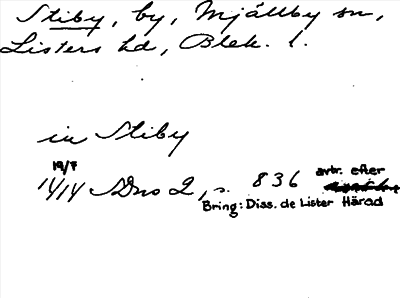 Stiby, by, Mjällby sn,
Listers hd, Blek. l.
in Stiby
19/7
14/14 SDns 2, s. 836 avtr. efter
Bring: Diss. de Lister Härad